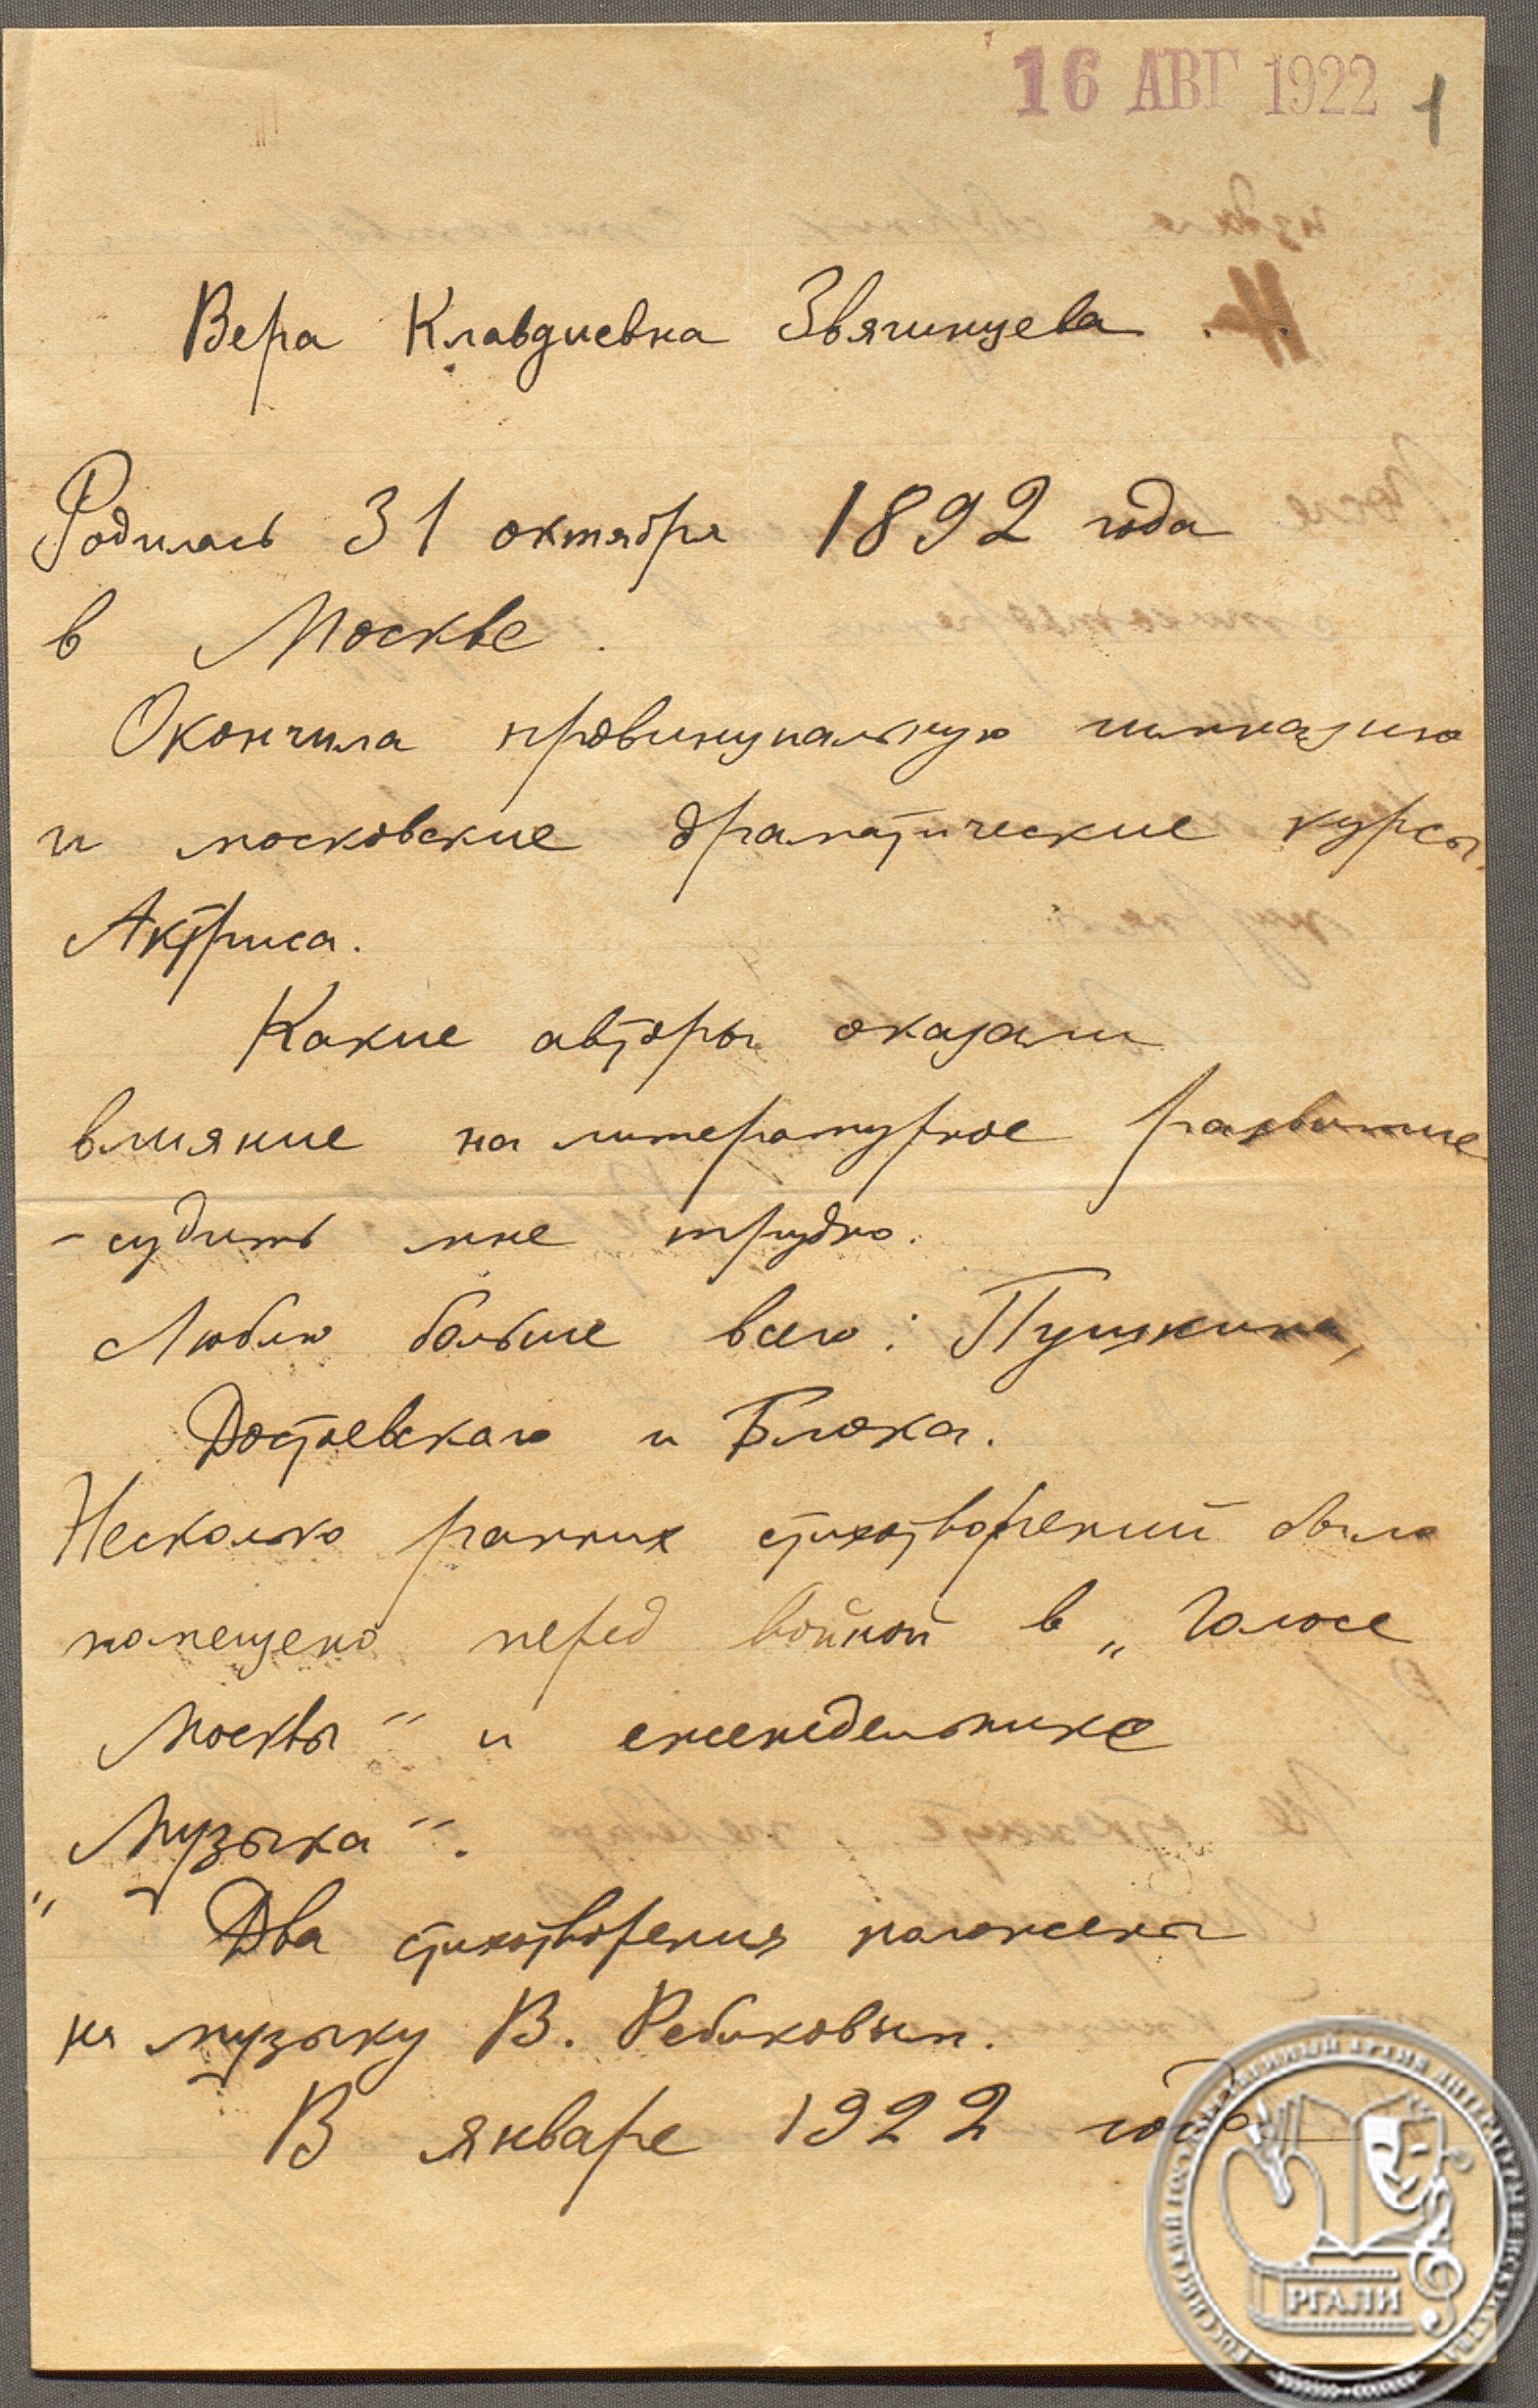 16 АВГ 1922 1
Вера Клавдиевна Звягинцева.
Родилась 31 октября 1892 года
в Москве.
Окончила провинциальную гимназию
и московские драматические курсы.
Актриса.
Какие авторы оказали
влияние на литературное развитие
– судить мне трудно.
Люблю больше всего: Пушкина,
Достоевскаго и Блока.
Несколько ранних стихотворений было
помещено перед войной в „Голосе
Москвы“ и еженедельнике
„Музыка“.
Два стихотворения положены
на музыку В. Ребиковым.
В январе 1922 года
РОССИЙСКИЙ ГОСУДАРСТВЕННЫЙ АРХИВ ЛИТЕРАТУРЫ И ИСКУССТВА
РГАЛИ